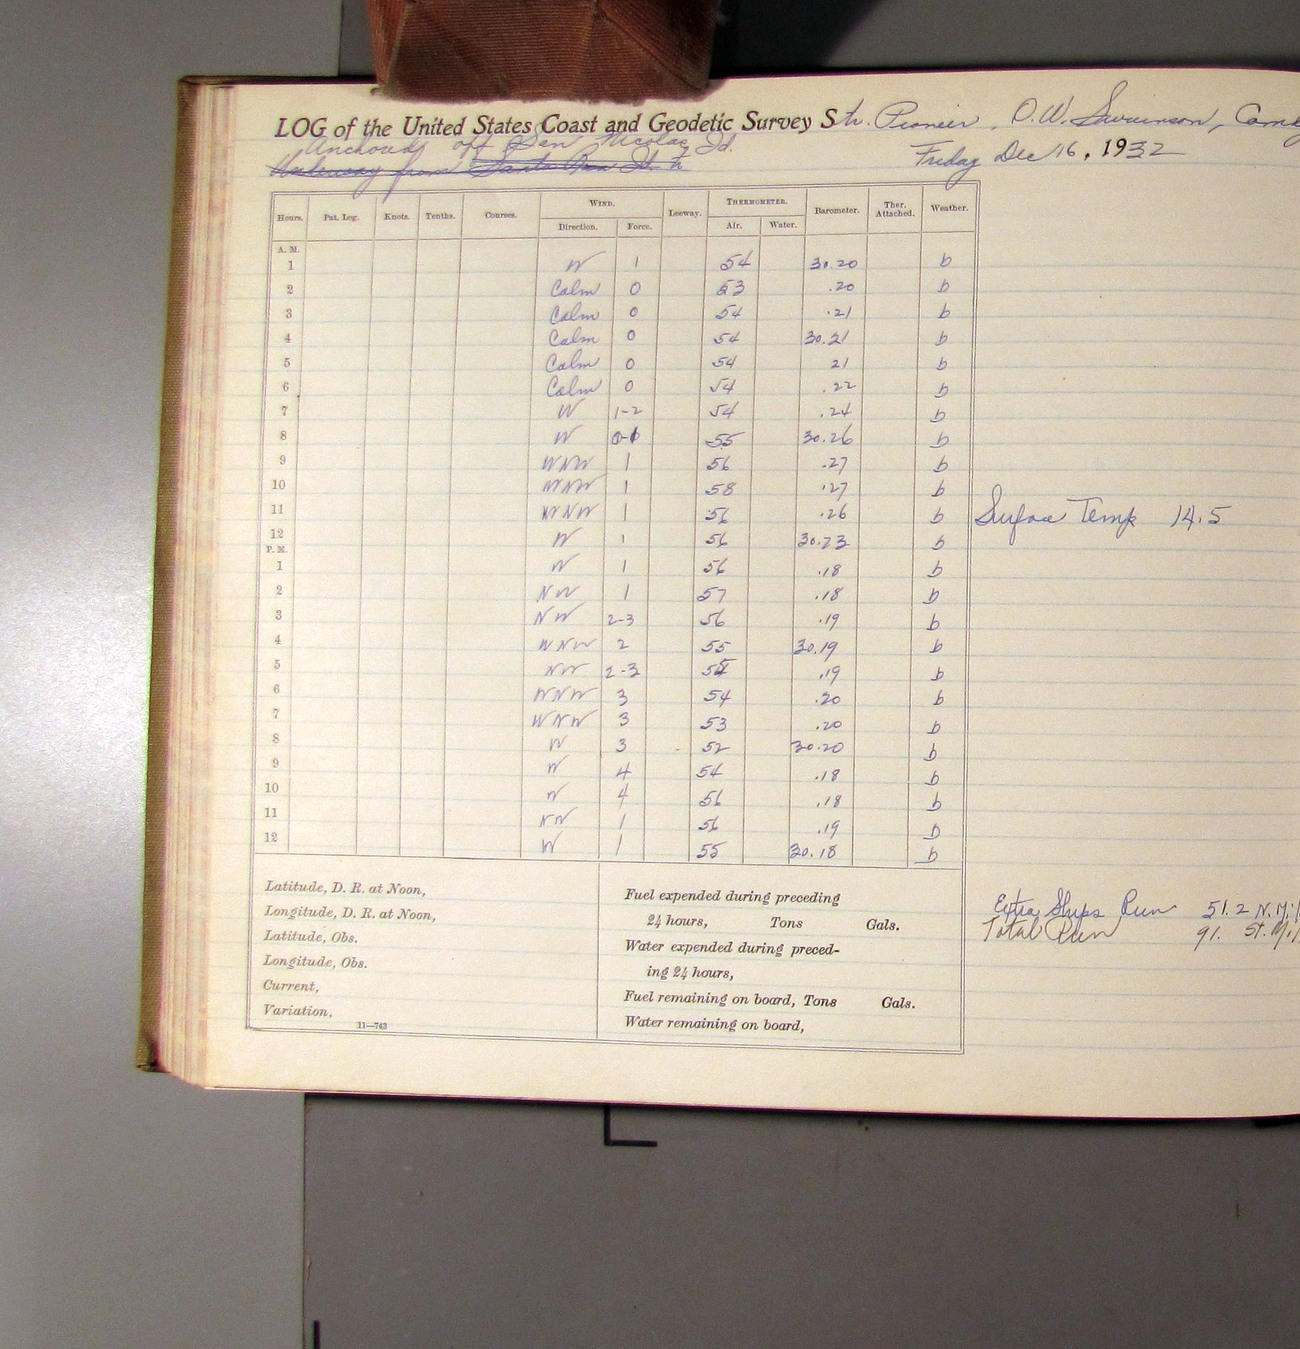 LOG of the United States Coast and Geodetic Survey Str. Pioneer, O.W. Swainson, Comdg
Anchored off San Nicolas Id.
Underway from Santa Id. to
Friday Dec 16, 1932
Hours. Pat. Log. Knots. Tenths. Courses. WIND. Direction. Force. Leeway. THERMOMETER. Air. Water. Barometer. Ther. Attached. Weather.
A. M.
1 W 1 54 30.20 b
2 Calm 0 53 .20 b
3 Calm 0 54 .21 b
4 Calm 0 54 30.21 b
5 Calm 0 54 21 b
6 Calm 0 54 .22 b
7 W 1-2 54 .24 b
8 W 0-1 55 30.26 b
9 WNW 1 56 .27 b
10 WNW 1 58 .27 b
11 WNW 1 56 .26 b Surface Temp 14.5
12 W 1 56 30.23 b
P. M.
1 W 1 56 .18 b
2 NW 1 57 .18 b
3 NW 2-3 56 .19 b
4 WNW 2 55 30.19 b
5 NW 2-3 .19 b
6 WNW 3 54 .20 b
7 WNW 3 53 .20 b
8 W 3 52 30.20 b
9 W 4 54 .18 b
10 W 4 56 .18 b
11 NW 1 56 .19 b
12 W 1 55 30.18 b
Latitude, D. R. at Noon,
Longitude, D. R. at Noon,
Latitude, Obs.
Longitude, Obs.
Current,
Variation,
11—743
Fuel expended during preceding
24 hours, Tons Gals.
Water expended during preced-
ing 24 hours,
Fuel remaining on board, Tons Gals.
Water remaining on board,
Extra Ships Run 51.2 N. Mi
Total Run 91. St. Mi